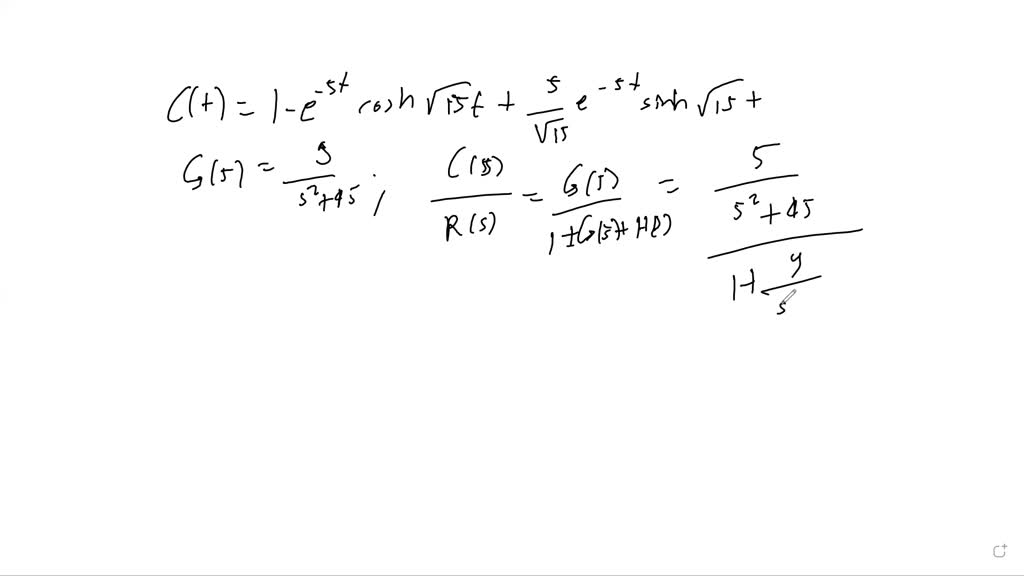 C(t) = 1 - e^{-5t} cosh √15 t + 5/√15 e^{-5t} sinh √15 t
G(s) = 9/(s²+45) ; C(s)/R(s) = G(s)/(1+G(s)+H(s)) = (5/(s²+45))/(1+ 9/s